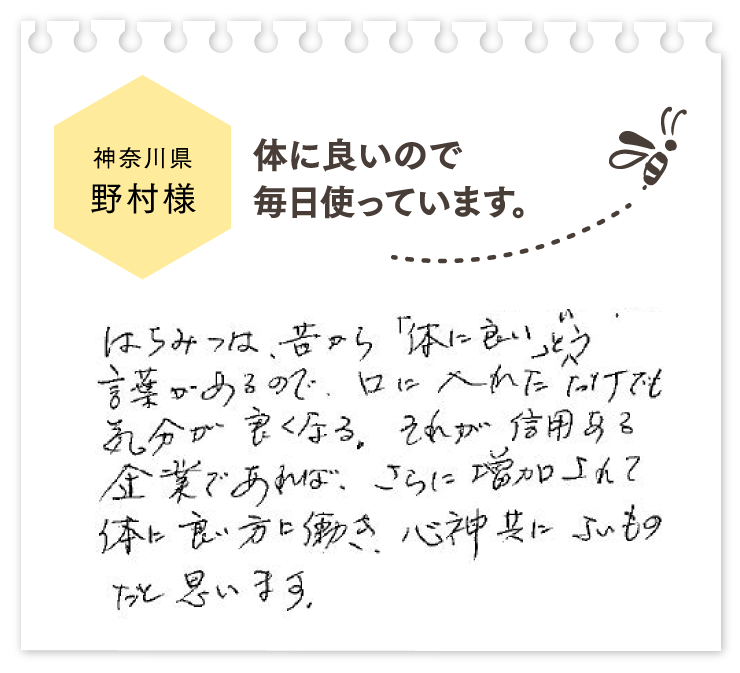 神奈川県
野村様
体に良いので
毎日使っています。
はちみつは、昔から「体に良い」という
言葉があるので、口に入れただけでも
気分が良くなる。それが信用ある
企業であれば、さらに増加されて
体に良い方に働き、心神共によいもの
だと思います。